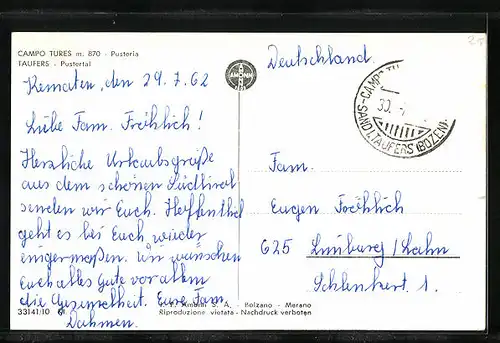 CAMPO TURES m. 870 - Pusteria
TAUFERS - Pustertal
Kematen, den 29.7.62
Liebe Fam. Fröhlich!
Herzliche Urlaubsgrüße
aus dem schönen Südtirol
senden wir Euch. Hoffentlich
geht es bei Euch wieder
einigermaßen. Wir wünschen
Euch alles Gute vor allem
die Gesundheit. Eure Fam.
Dahmen.
33141/10
AMONN
Deutschland.
SAND I. TAUFERS (BOZEN)
30.
Fam.
Eugen Fröhlich
625 Limburg/Lahn
1.
F. E. Amonn S. A. - Bolzano - Merano
Riproduzione vietata - Nachdruck verboten